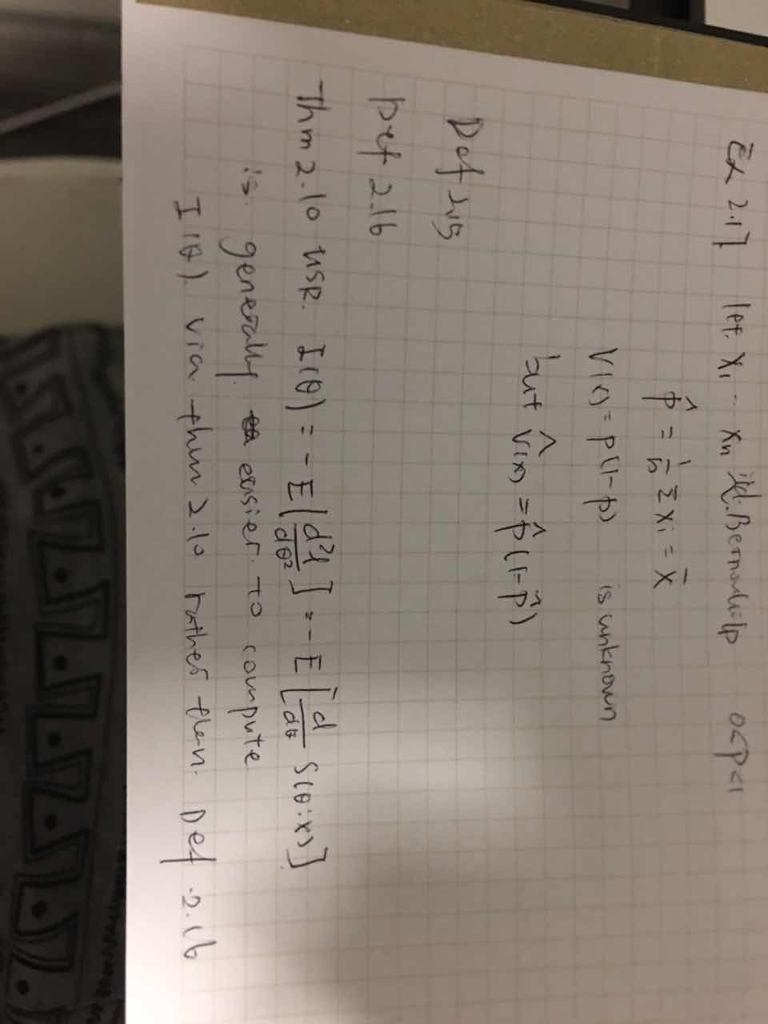 Ex 2.17 let. X₁ ... Xₙ iid. Bernoulli p 0<p<1
p̂ = 1/n Σ xᵢ = x̄
V(x) = p(1-p) is unknown
but V̂(x) = p̂(1-p̂)
Def 2.15
Def 2.16
Thm 2.10 use. I(θ) = -E[d²ℓ/dθ²] = -E[d/dθ S(θ:x)]
is. generally easier. to compute
I(θ). via thm 2.10 rather then. Def 2.16